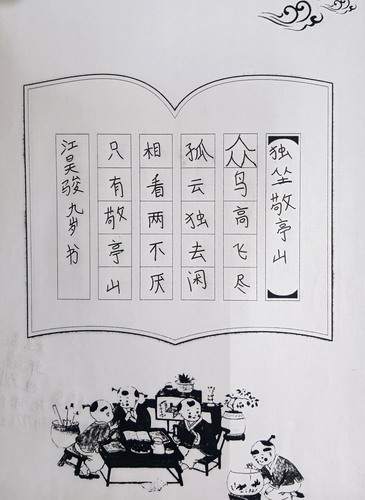 独坐敬亭山
众鸟高飞尽
孤云独去闲
相看两不厌
只有敬亭山
江昊骏 九岁 书